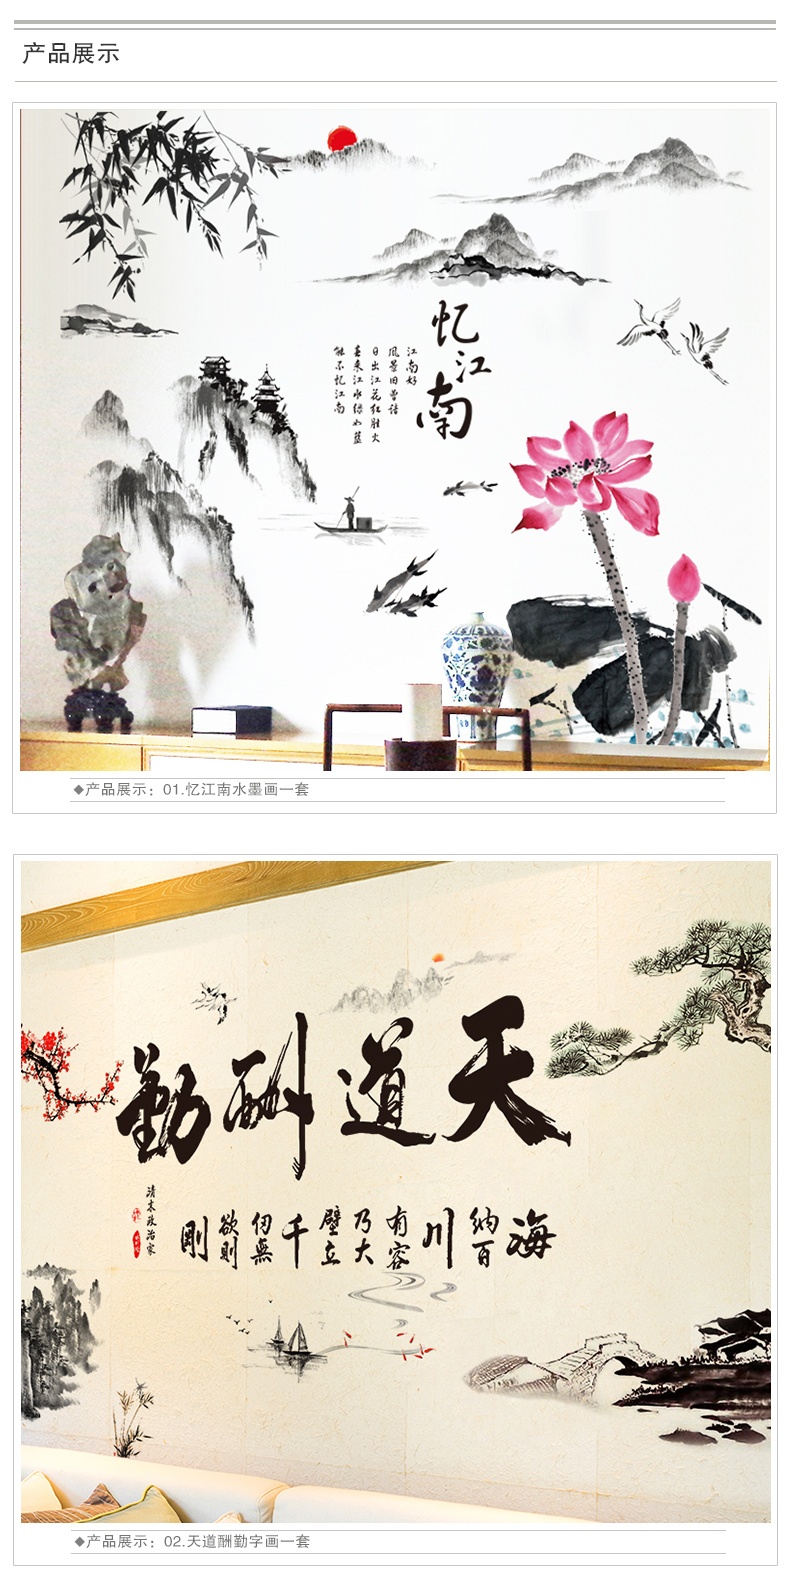 产品展示
忆江南
江南好
风景旧曾谙
日出江花红胜火
春来江水绿如蓝
能不忆江南
◆产品展示：01.忆江南水墨画一套
天道酬勤
海纳百川有容乃大壁立千仞無欲则剛
清末政治家
◆产品展示：02.天道酬勤字画一套